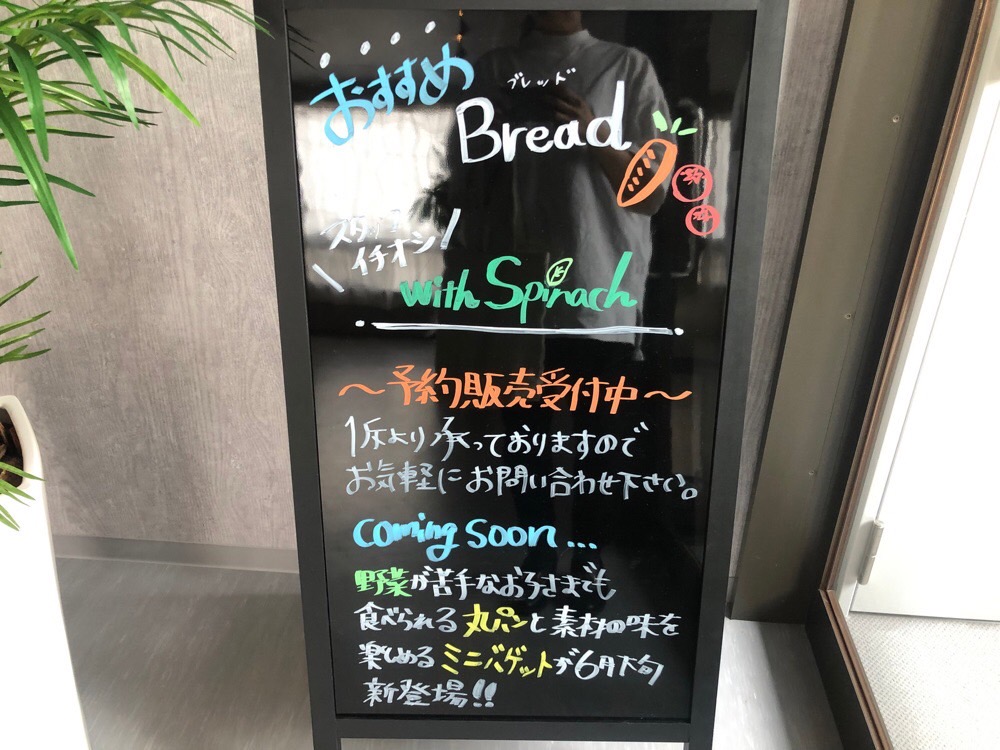 おすすめ
ブレッド
Bread
スタッフ
イチオシ
with Spinach
～予約販売受付中～
1斤より承っておりますので
お気軽にお問い合わせ下さい。
coming soon...
野菜が苦手なお子さまでも
食べられる丸パンと素材の味を
楽しめるミニバゲットが6月下旬
新登場!!